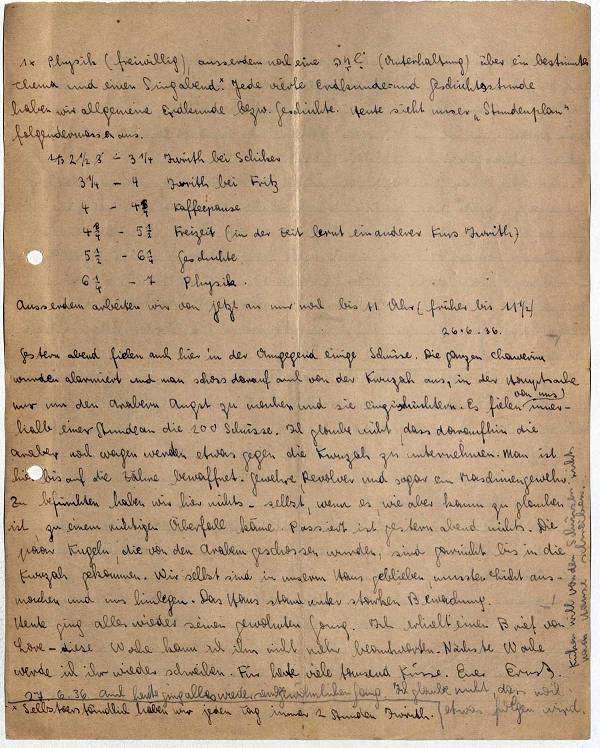 1x Physik (freiwillig) ausserdem noch eine שיחה (Unterhaltung) über ein bestimmtes
Thema und einen Singabend.* Jede vierte Erdkunde- und Geschichtsstunde
haben wir allgemeine Erdkunde bezw. Geschichte. Heute sieht unser „Stundenplan"
folgendermassen aus.
2 1/2 - 3 1/4 Iwrith bei
3 1/4 - 4 Iwrith bei Fritz
4 - Kaffeepause
- 5 1/2 Freizeit (in der Zeit lernt ein anderer Kurs Iwrith)
5 1/2 - 6 1/4 Geschichte
6 1/4 - 7 Physik.
Ausserdem arbeiten wir von jetzt an nur noch bis 11 Uhr (früher bis 11 1/2)
26.6.36.
Gestern abend fielen auch hier in der Umgegend einige Schüsse. Die ganzen chawerim
wurden alarmiert und man schoss darauf auch von der Kwuzah aus, in der Hauptsache
nur um den Arabern Angst zu machen und sie einzuschüchtern. Es fielen (von uns) inner-
halb einer Stunde an die 200 Schüsse. Ich glaube nicht, dass daraufhin die
Araber noch wagen werden etwas gegen die Kwuzah zu unternehmen. Man ist
hier bis auf die Zähne bewaffnet. Gewehre, Revolver und sogar ein Maschinengewehr.
Zu befürchten haben wir hier nichts - selbst, wenn es wie aber kaum zu glauben
ist, zu einem richtigen Überfall käme. Passiert ist gestern abend nichts. Die
paar Kugeln, die von den Arabern geschossen wurden, sind garnicht bis in die
Kwuzah gekommen. Wir selbst sind in unserem Haus geblieben, mussten Licht aus-
machen und uns hinlegen. Das Haus stand unter starker Bewachung.
Heute ging alles wieder seinen gewohnten Gang. Ich erhielt einen Brief von
Lore - diese Woche kann ich ihn nicht mehr beantworten. Nächste Woche
werde ich ihr wieder schreiben. Für heute viele tausend Küsse. Euer Ernst.
27.6.36 Auch heute ging alles wieder seinen gewöhnlichen Gang. Ich glaube nicht, dass noch
etwas folgen wird.
* Selbstverständlich haben wir jeden Tag immer 2 Stunden Iwrith.
will von den Schüssen nichts
nach Hause schreiben.